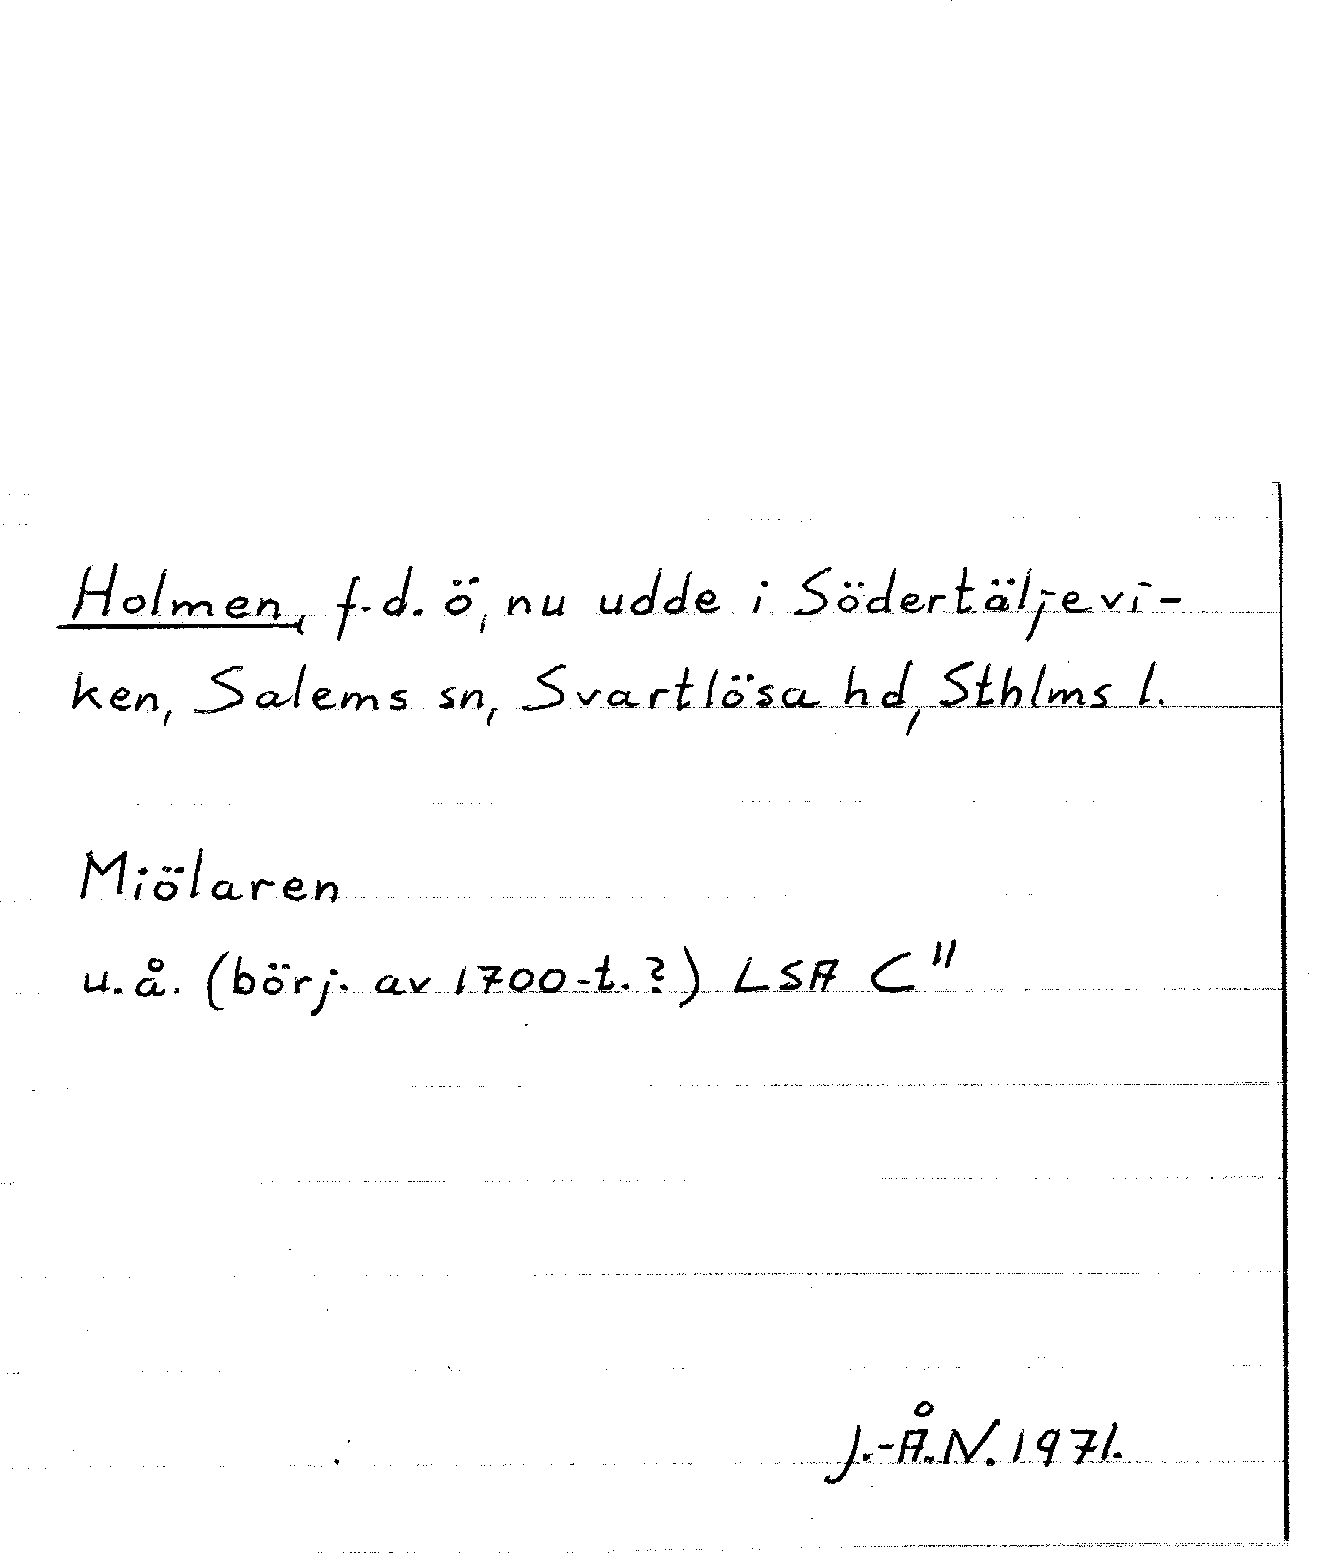 Holmen, f.d. ö, nu udde i Södertäljevi-
ken, Salems sn, Svartlösa hd, Sthlms l.
Miölaren
u.å. (börj. av 1700-t.?) LSA C"
J.-Å.N. 1971.